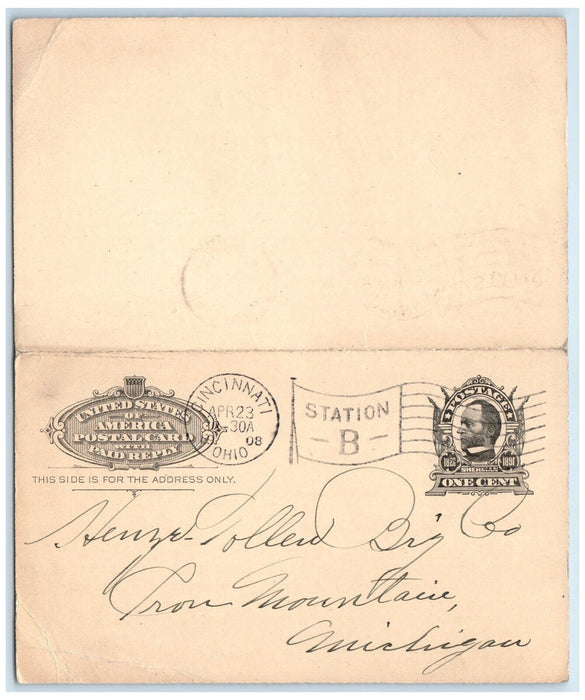 UNITED STATES
OF
AMERICA
POSTAL CARD
WITH
PAID REPLY
THIS SIDE IS FOR THE ADDRESS ONLY.
CINCINNATI
APR 23
30A
08
OHIO
STATION
-B-
POSTAGE
1820 1891
SHERMAN
ONE CENT
Henze-Tollen Brg Co
Iron Mountain,
Michigan